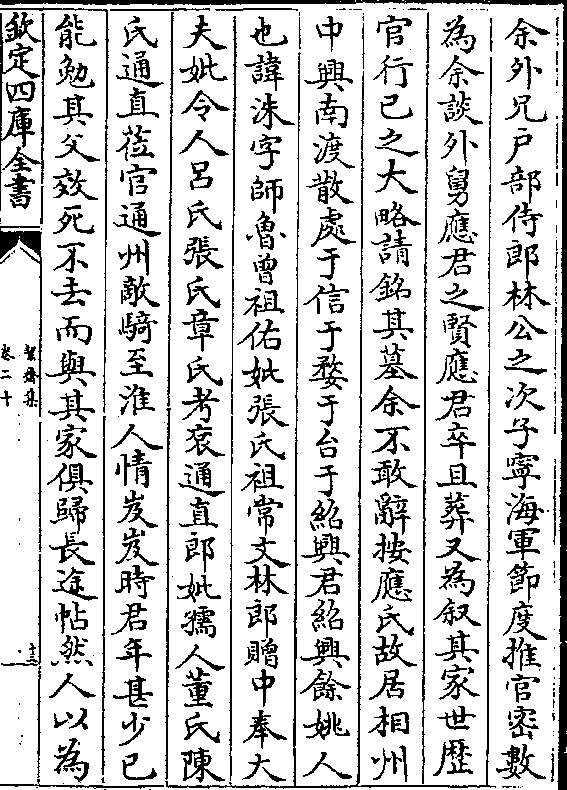 余外兄户部侍郎林公之次子寧海軍節度推官宻數
為余談外舅應君之賢應君卒且葬又為叙其家世歴
官行已之大略請銘其墓余不敢辭按應氏故居相州
中興南渡散處于信于婺于台于紹興君紹興餘姚人
也諱洙字師魯曽祖佑妣張氏祖常文林郎贈中奉大
夫妣令人吕氏張氏章氏考衮通直郎妣孺人董氏陳
氏通直莅官通州敵騎至淮人情岌岌時君年甚少已
能勉其父效死不去而與其家俱歸長途帖然人以為
欽定四庫全書
絜齋集
卷二十
十三